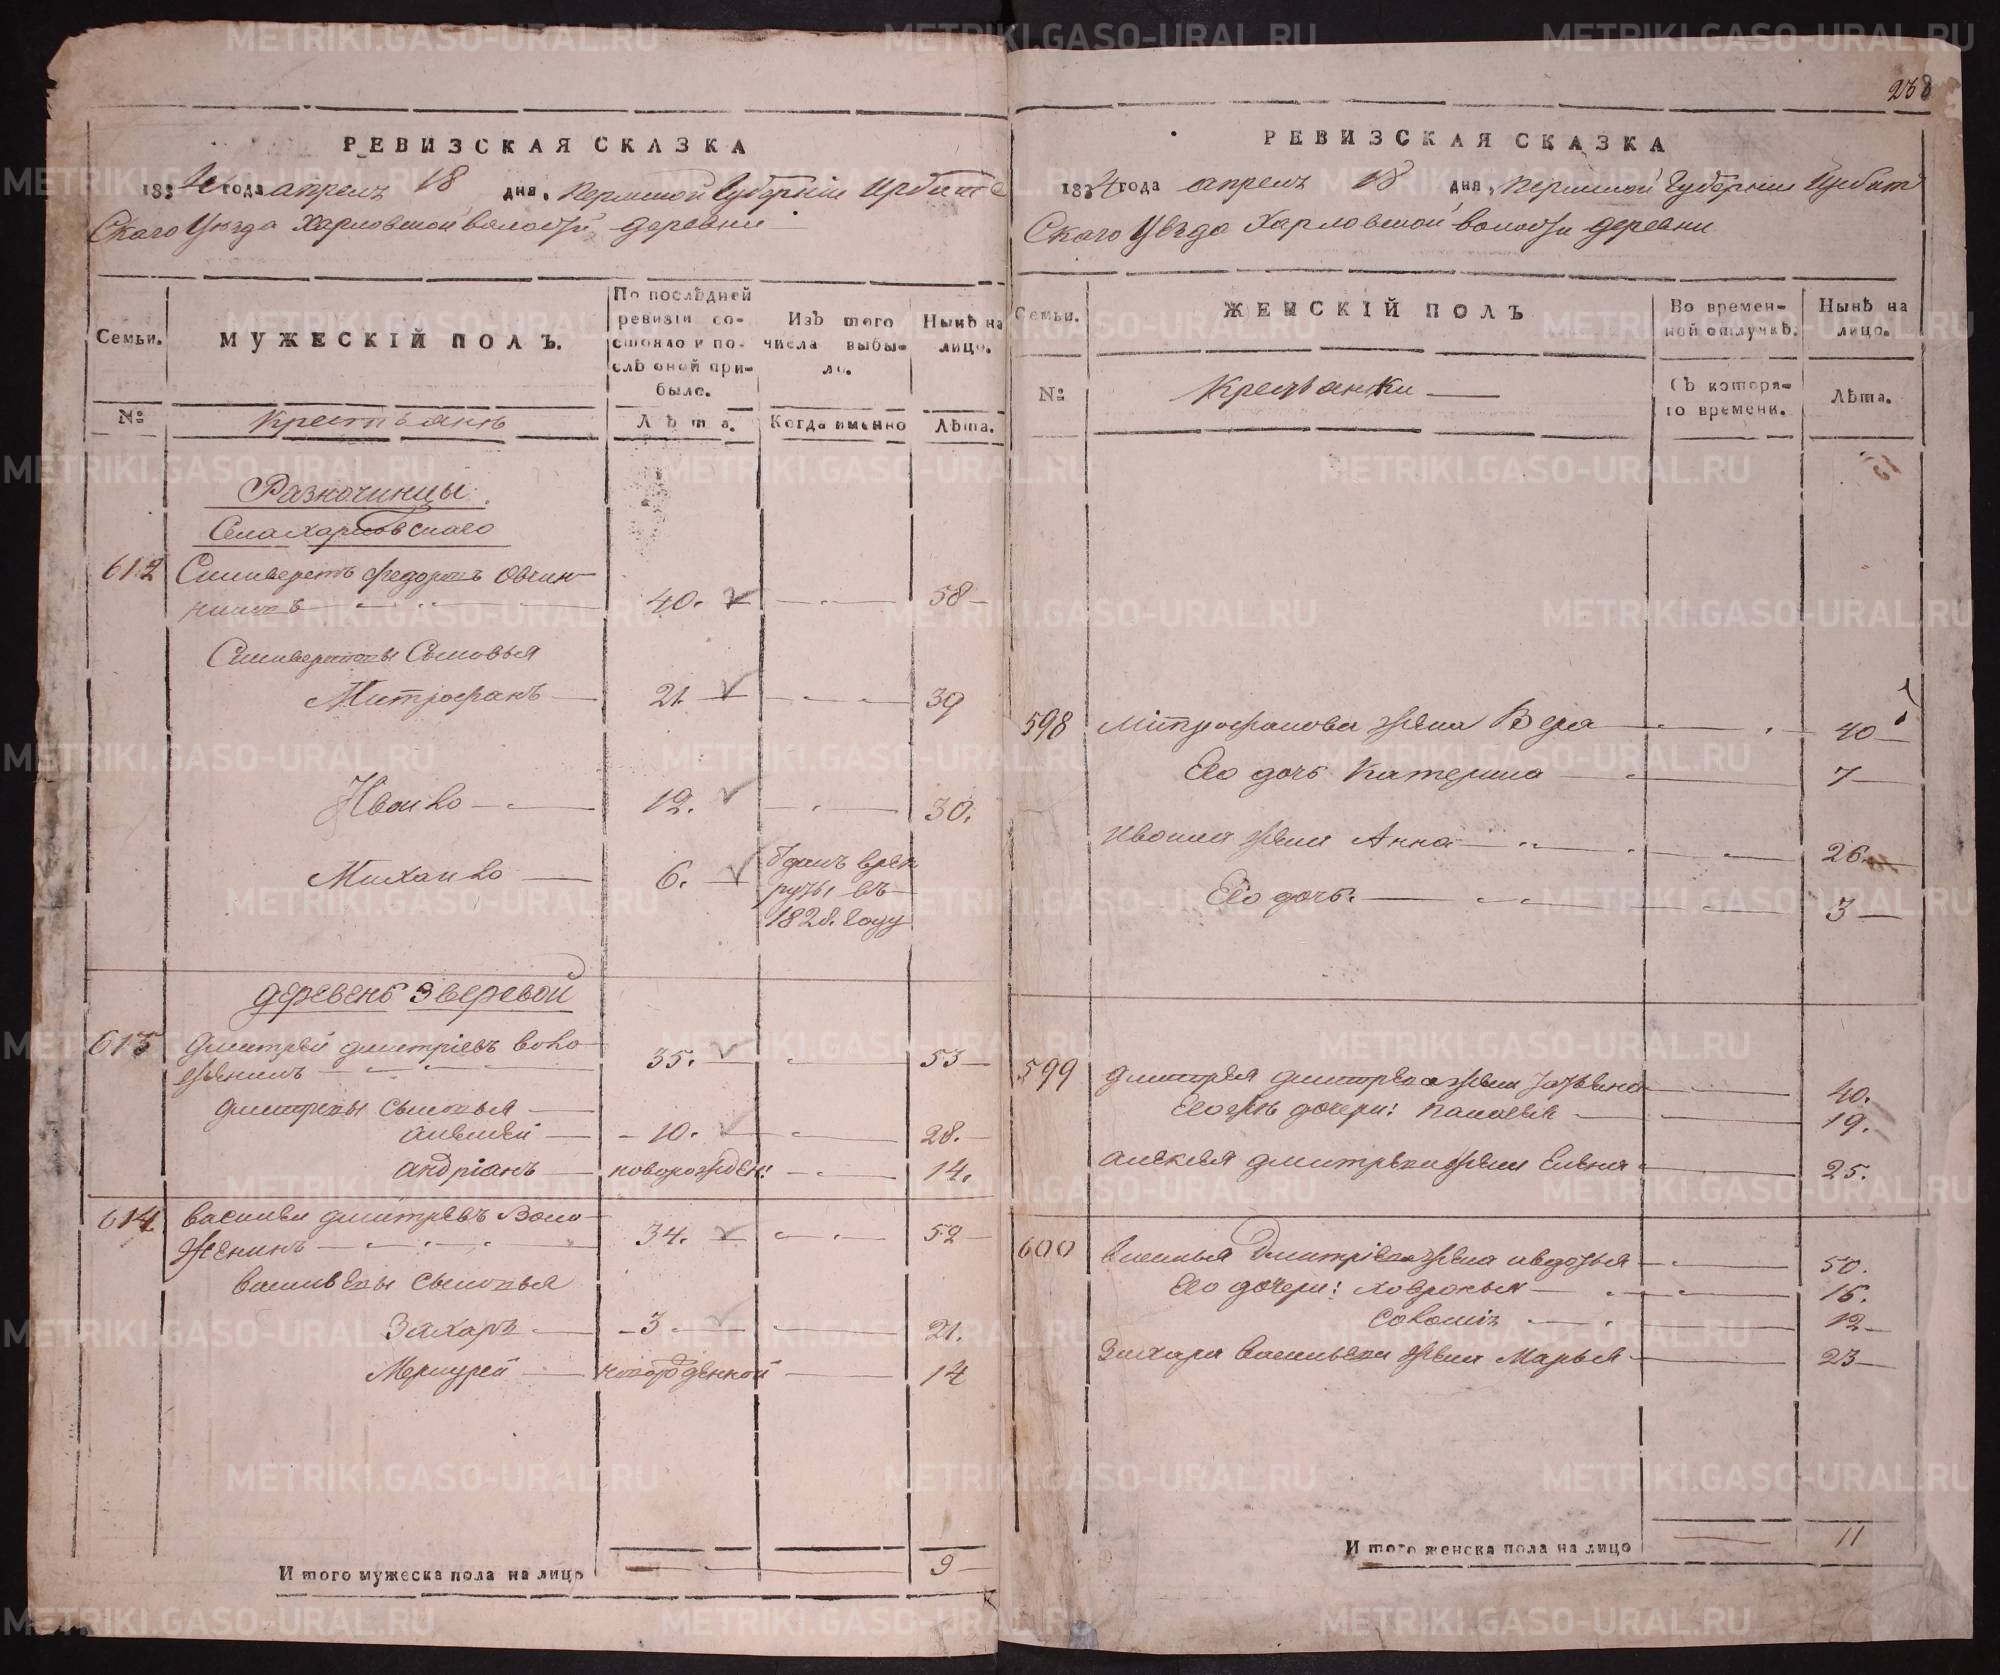 РЕВИЗСКАЯ СКАЗКА
1834 года апреля 18 дня, Пермской Губернiи Ирбит
скаго Уѣзда Харловской волости деревни
Семьи.
МУЖЕСКIЙ ПОЛЪ.
По послѣдней
ревизiи со-
стояло и по-
слѣ оной при-
было.
Изъ того
числа выбы-
ло.
Нынѣ на
лицо.
№
Крестьянъ
Лѣта.
Когда именно
Лѣта.
Разночинцы
Села Харловскаго
612 Силиверстъ Федоровъ Овчин-
никовъ 40. 58
Силиверстовы Сыновья
Митрофанъ 21. 39
Ивонко 12. 30.
Михаило 6. Отданъ врек
руты въ
1828. году
деревень Зверевой
613 Дмитрей Дмитрiевъ Воло
женинъ 35. 53
Дмитревы сыновья
Алексей 10. 28.
Андрiанъ новорожден: 14.
614 Василей Дмитревъ Воло
женинъ 34. 52
Васильевы сыновья
Захаръ 3 21.
Меркурей новорожденной 14
И того мужеска пола на лицо 9
238
РЕВИЗСКАЯ СКАЗКА
1834 года апреля 18 дня, Пермской Губернiи Ирбит
скаго Уѣзда Харловской волости деревни
Семьи.
ЖЕНСКIЙ ПОЛЪ
Во времен-
ной отлучкѣ.
Нынѣ на
лицо.
№
Крестьянки
Съ котора-
го времени.
Лѣта.
598 Митрофанова жена Вера 40
Его дочь Катерина 7
Ивонки жена Анна 26.
Его дочь. 3
599 Дмитрея Дмитрева жена Татьяна 40.
дочери: Палагея 19.
Алексея Дмитрева жена Елена 25.
600 Василья Дмитрiева жена Авдотья 50.
Его дочери: Ховронья 16.
Соломiя 12
Захара Васильева жена Марья 23
И того женска пола на лицо 11
METRIKI.GASO-URAL.RU